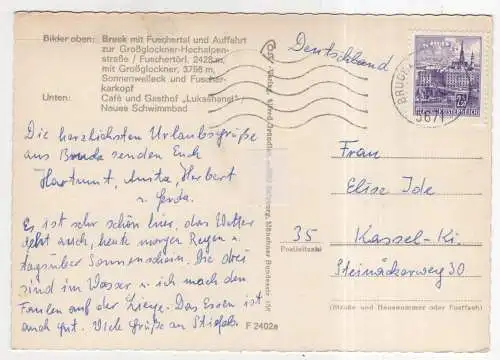 Bilder oben: Bruck mit Fuschertal und Auffahrt
zur Großglockner-Hochalpen-
straße / Fuschertörl, 2428 m,
mit Großglockner, 3798 m,
Sonnenwelleck und Fuscher-
karkopf
Unten: Café und Gasthof „Lukashansl“ /
Neues Schwimmbad
Die herzlichsten Urlaubsgrüße
aus Bruck senden Euch
Hartmut, Anita, Herbert
u. Gerda.
Es ist sehr schön hier, das Wetter
geht auch, heute morgen Regen u.
tagsüber Sonnenschein. Die drei
sind im Wasser u. ich mach den
Faulen auf der Liege. Das Essen ist
auch gut. Viele Grüße an
F 2402e
Deutschland
Frau
Elise Ide
35 Kassel-Ki.
Postleitzahl
Steinäckerweg 30
(Straße und Hausnummer oder Postfach)
5671